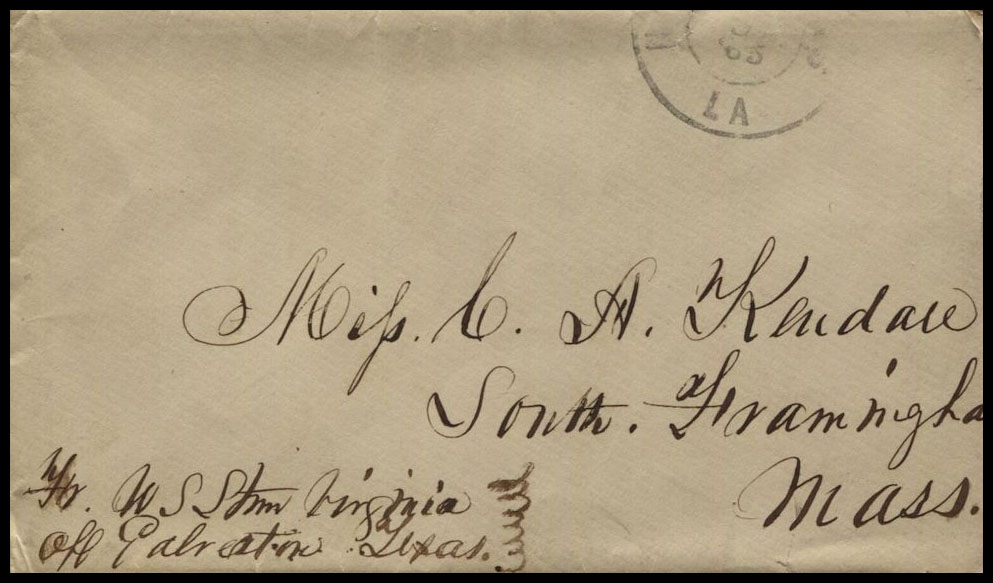 LA
Miss. C. A. Kendall
South. Framingha
Mass.
Fr. U S Stmr Virginia
Off Galveston Texas.